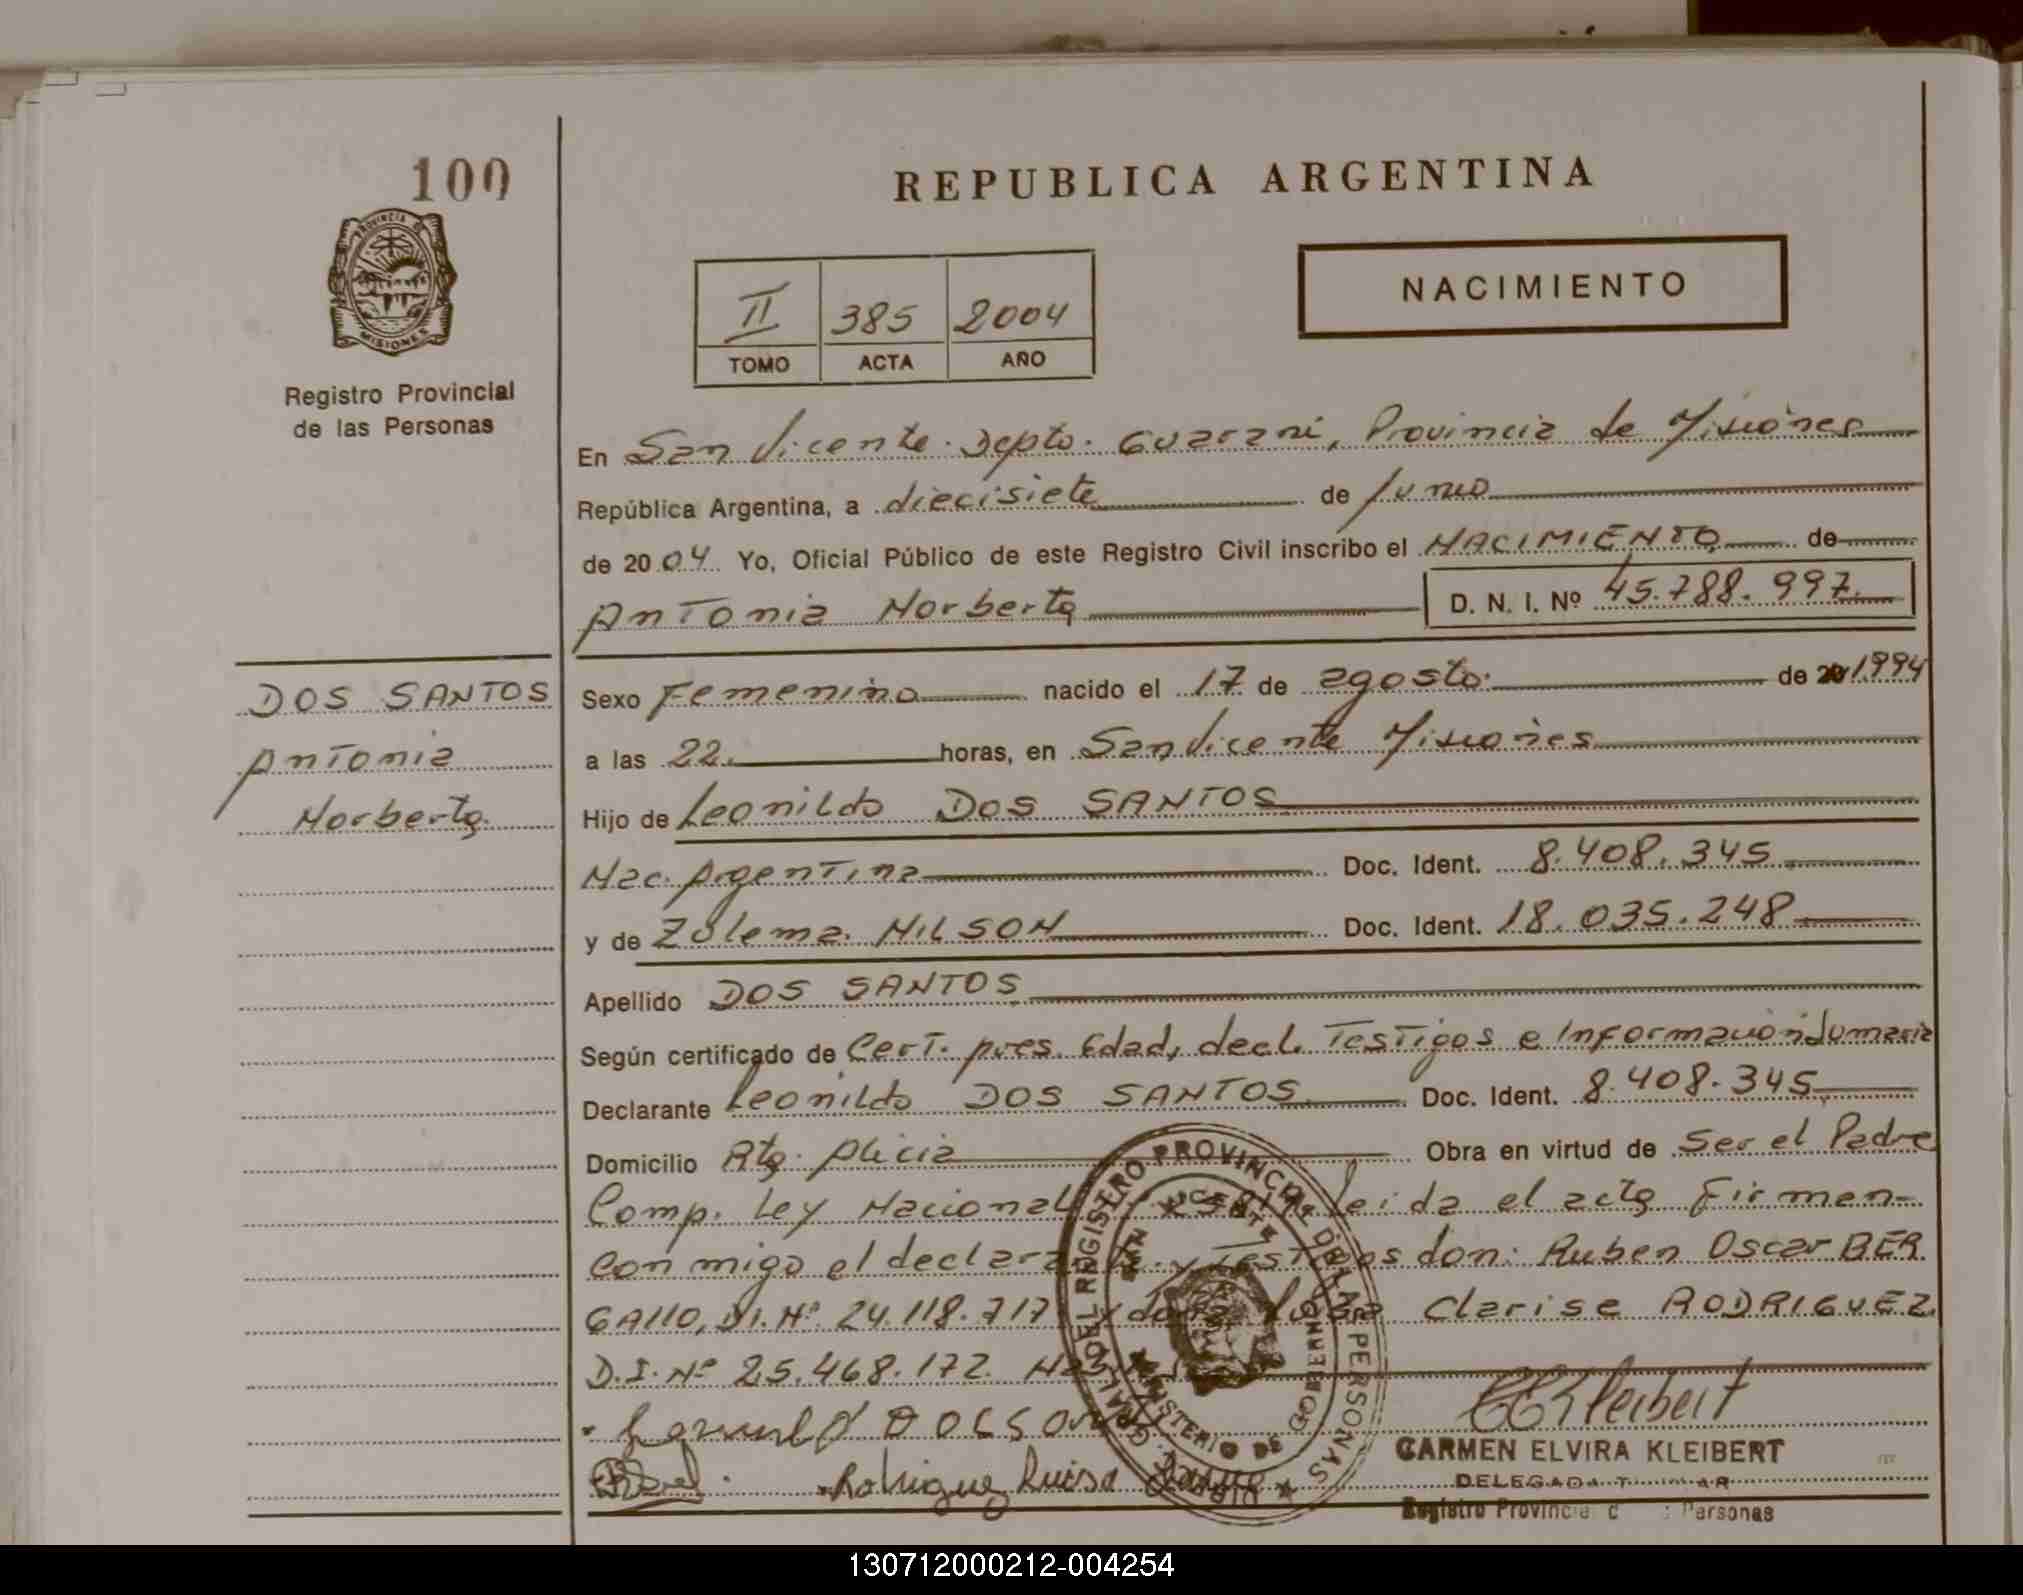 100
REPUBLICA ARGENTINA
PROVINCIA DE MISIONES
Registro Provincial
de las Personas
II 385 2004
TOMO ACTA AÑO
NACIMIENTO
En San Vicente. Depto. Guarani, Provincia de Misiones
República Argentina, a diecisiete de Junio
de 2004 Yo, Oficial Público de este Registro Civil inscribo el NACIMIENTO de
Antonia Norberta D. N. I. Nº 45.788.997.
DOS SANTOS
Antonia
Norberta.
Sexo Femenino nacido el 17 de agosto. de 1994
a las 22. horas, en San Vicente Misiones
Hijo de Leonildo DOS SANTOS
Nac. Argentina Doc. Ident. 8.408.345
y de Zulema. NILSON Doc. Ident. 18.035.248
Apellido DOS SANTOS
Según certificado de Cert. pres. Edad, decl. Testigos e Informacion Sumaria
Declarante Leonildo DOS SANTOS Doc. Ident. 8.408.345
Domicilio Pto. Alicia Obra en virtud de Ser el Padre
Comp. Ley Nacional Leida el acta Firman
Conmigo el declarante y Testigos don: Ruben Oscar BER
GALLO, D.I. Nº 24.118.717 y doña Luisa Clarise RODRIGUEZ
D.I. Nº 25.468.172.
Rodrigue Luisa
REGISTRO PROVINCIAL DE LAS PERSONAS
SAN VICENTE
MINISTERIO DE GOBIERNO
CEKleibert
CARMEN ELVIRA KLEIBERT
DELEGADA TITULAR
Registro Provincial de las Personas
130712000212-004254